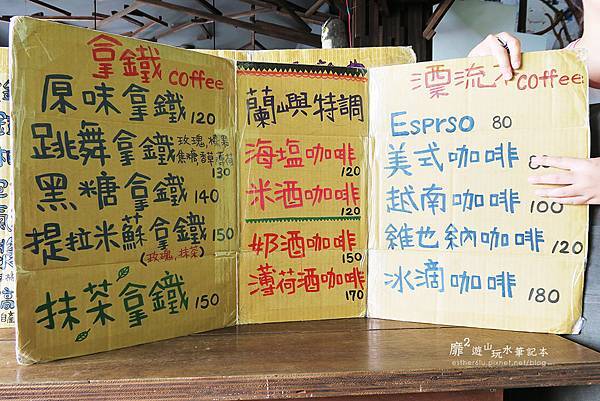 拿鐵 coffee
原味拿鐵 120
跳舞拿鐵 玫瑰,榛果
焦糖,薄荷
130
黑糖拿鐵 140
提拉米蘇拿鐵 150
(玫瑰,抹茶)
抹茶拿鐵 150
蘭嶼特調
海塩咖啡
120
米酒咖啡
120
奶酒咖啡
150
薄荷酒咖啡
170
漂流木 coffee
Esprso 80
美式咖啡 80
越南咖啡 100
維也納咖啡 120
冰滴咖啡 180
靡² 遊山玩水筆記本
esther8lu.pixnet.net/blog